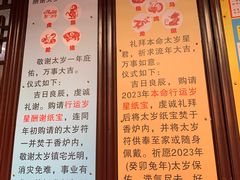 酬谢太岁
敬谢太岁一年庇
佑，万事大吉。
仪式如下：
吉日良辰，虔诚
礼谢。购请行运岁
星酬谢纸宝，连同
年初购请的太岁符
一并焚于香炉内，
敬谢太岁镇宅光明，
消灾免难，事业有
礼拜本命太岁星
君，祈求流年大吉，
万事如意。
仪式如下：
吉日良辰，购请
2023年本命行运岁
星纸宝，虔诚礼拜
后将太岁纸宝焚于
香炉内，并将太岁
符供奉至家或随身
佩戴。祈愿2023年
(癸卯兔年)太岁保
佑，